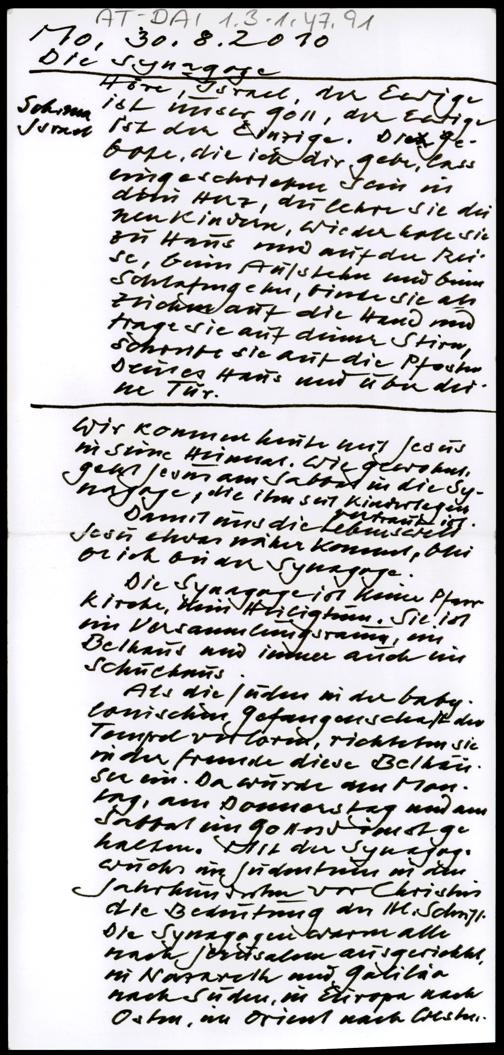 AT-DAI 1.3.1.47.91
Mo, 30.8.2010
Die Synagoge
Schma
Israel
Höre, Israel, der Ewige
ist unser Gott, der Ewige
ist der Einzige. Diese Ge-
bote, die ich dir gebe, lass
eingeschrieben sein in
dein Herz, du lehre sie dei
nen Kindern, wiederhole sie
zu Haus und auf der Rei-
se, beim Aufstehn und beim
Schlafengehn, binde sie als
Zeichen auf die Hand und
trage sie auf deiner Stirn,
schreibe sie auf die Pfosten
Deines Haus und über dei-
ne Tür.
Wir kommen heute mit Jesus
in seine Heimat. Wie gewohnt,
geht Jesus am Sabbat in die Sy-
nagoge, die ihm seit Kindertagen
vertraut ist.
Damit uns die Lebenswelt
Jesu etwas näher kommt, blei
be ich bei der Synagoge.
Die Synagoge ist keine Pfarr
kirche, kein Heiligtum. Sie ist
ein Versammlungsraum, ein
Bethaus und immer auch ein
Schulhaus.
Als die Juden in der baby-
lonischen Gefangenschaft den
Tempel verloren, richteten sie
in der Fremde diese Bethäu-
ser ein. Da wurde am Mon-
tag, am Donnerstag und am
Sabbat ein Gottesdienst ge
halten. Mit der Synagoge
wuchs im Judentum in den
Jahrhunderten vor Christus
die Bedeutung der Hl. Schrift.
Die Synagogen waren alle
nach Jerusalem ausgerichtet,
in Nazareth und Galiläa
nach Süden, in Europa nach
Osten, im Orient nach Westen.